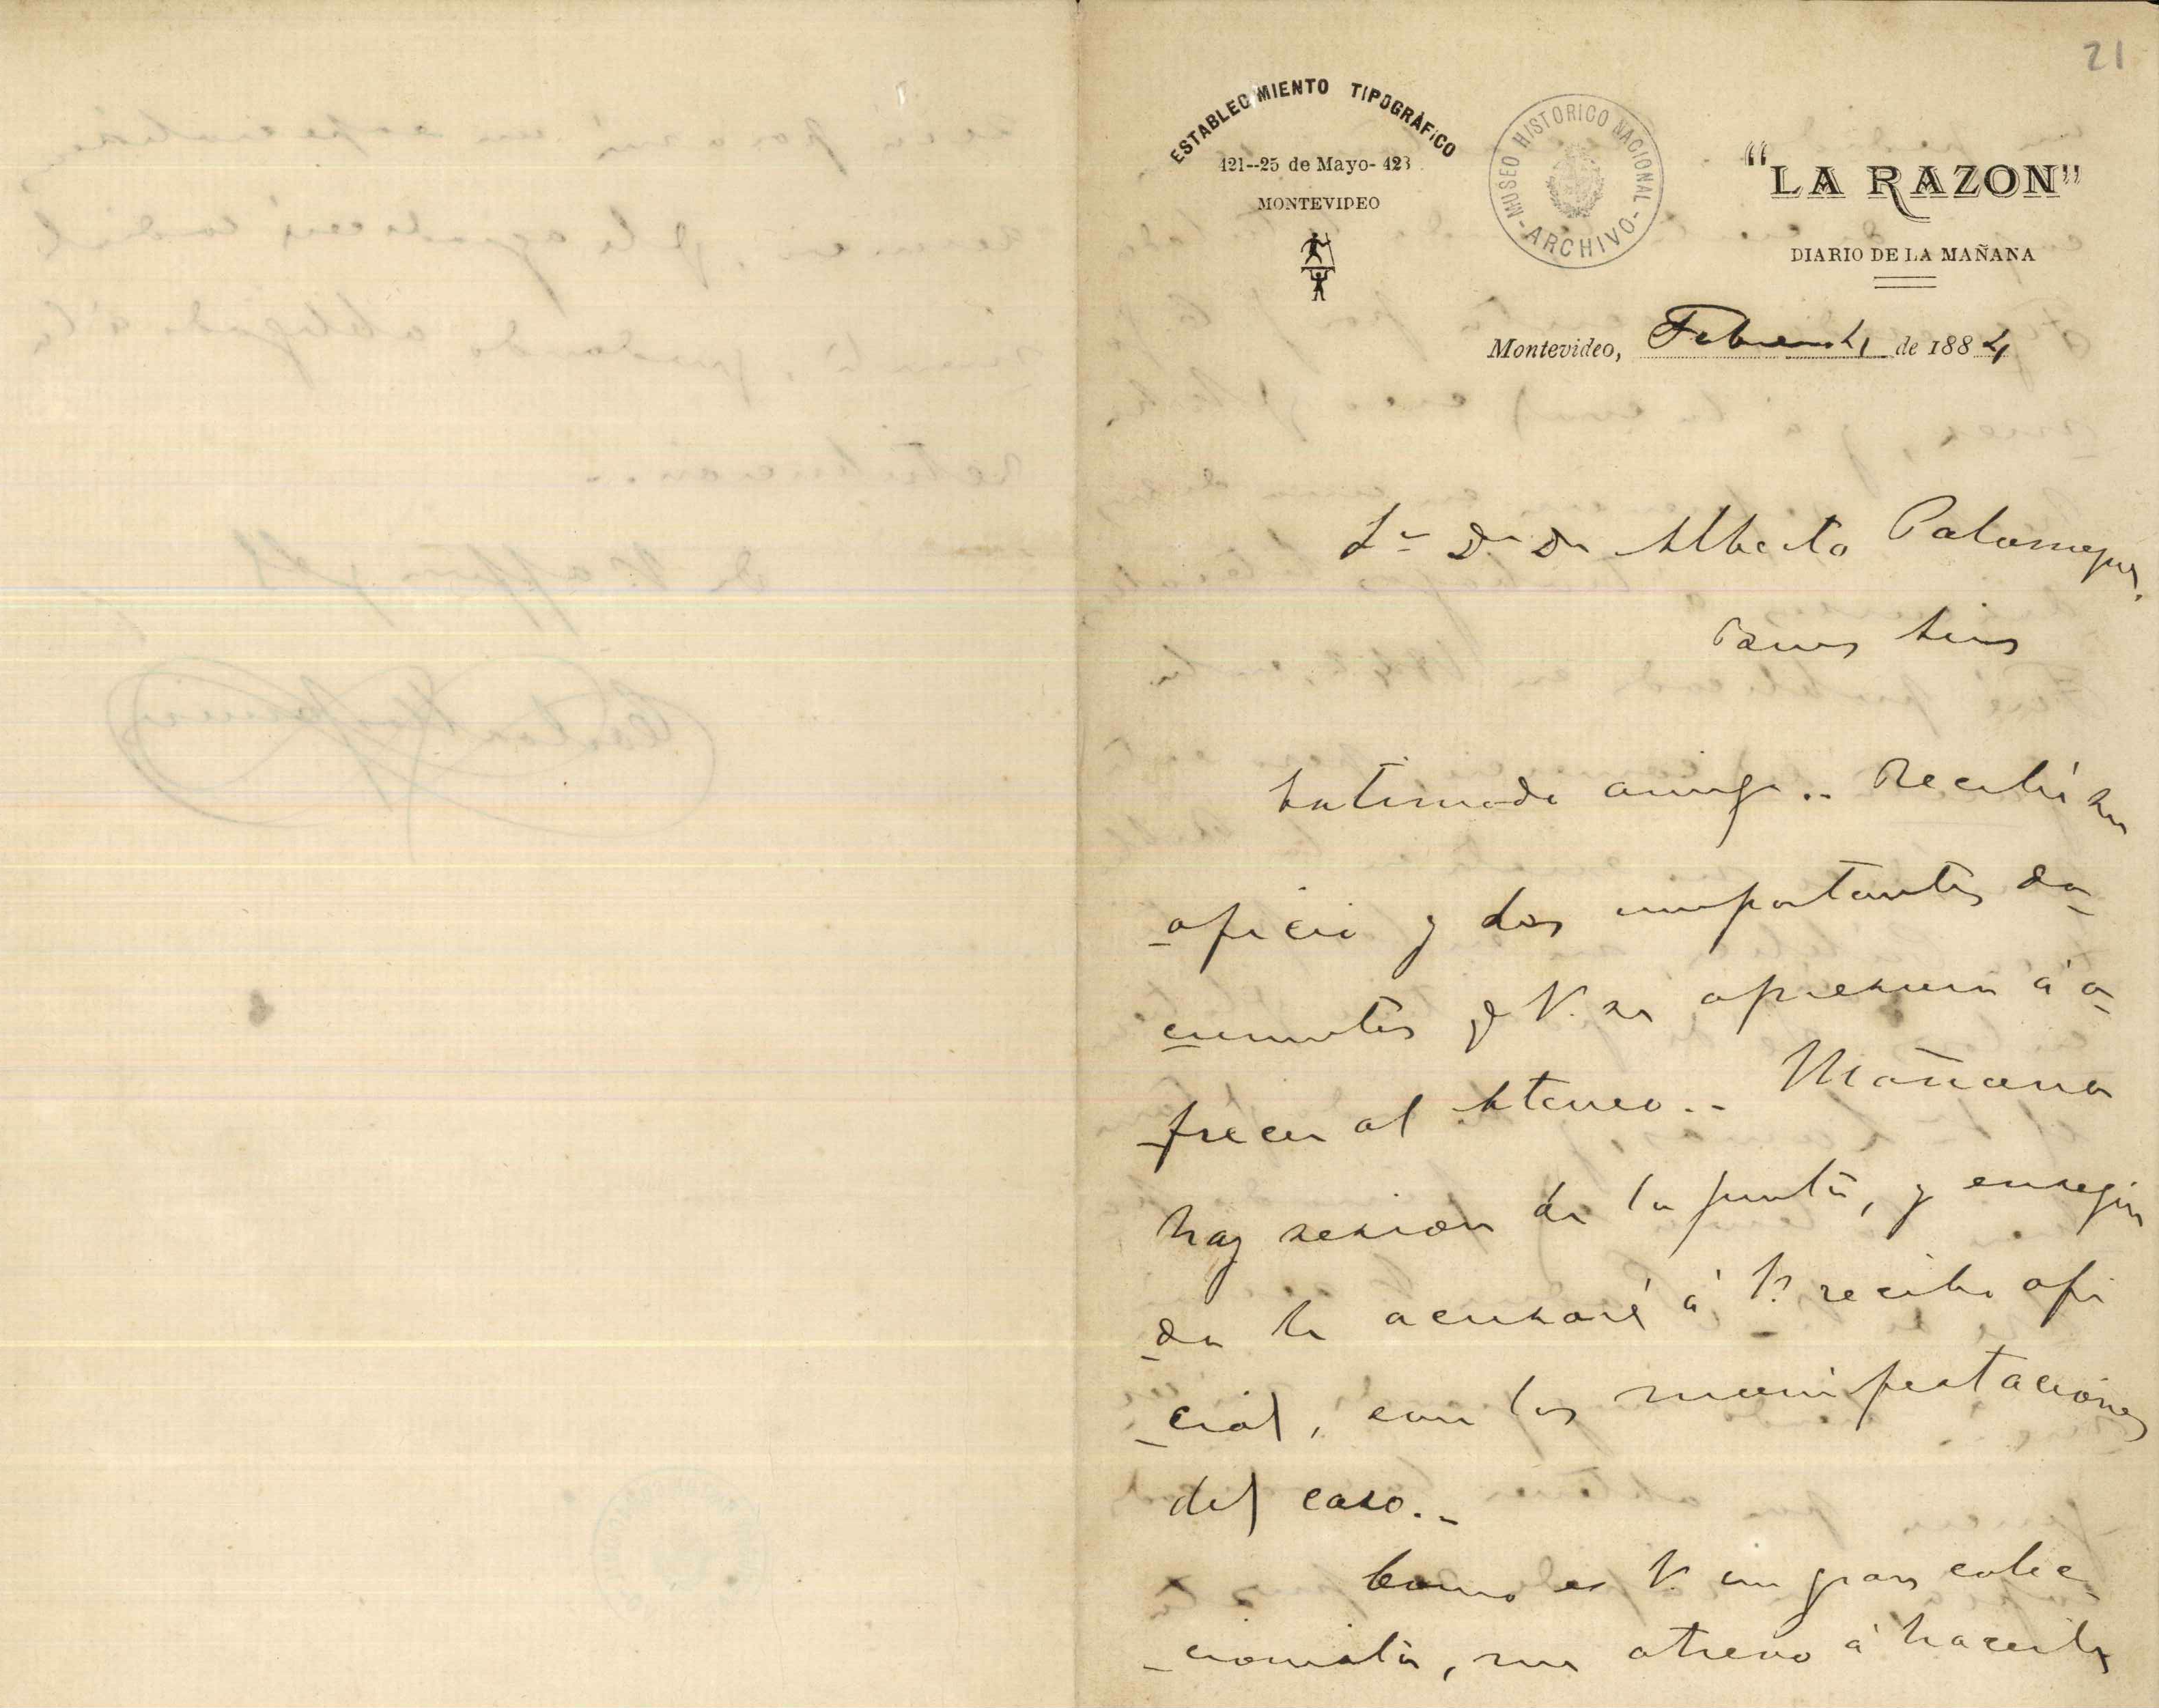 21
ESTABLECIMIENTO TIPOGRÁFICO
421--25 de Mayo- 423
MONTEVIDEO
MUSEO HISTORICO NACIONAL
- ARCHIVO -
"LA RAZON"
DIARIO DE LA MAÑANA
Montevideo, Febrero 4 de 1884
Sr Dr Dn Alberto Palomeque.
Estimado amigo.. Recibí su
oficio y dos importantes do-
cumentos q V. se apresura á o-
frecer al Ateneo.. Mañana
hay sesion de la junta, y ensegui
da le acusaré á V. recibo ofi
cial, con las manifestaciones
del caso..
Como es V. un gran colec-
cionista, me atrevo á hacerle